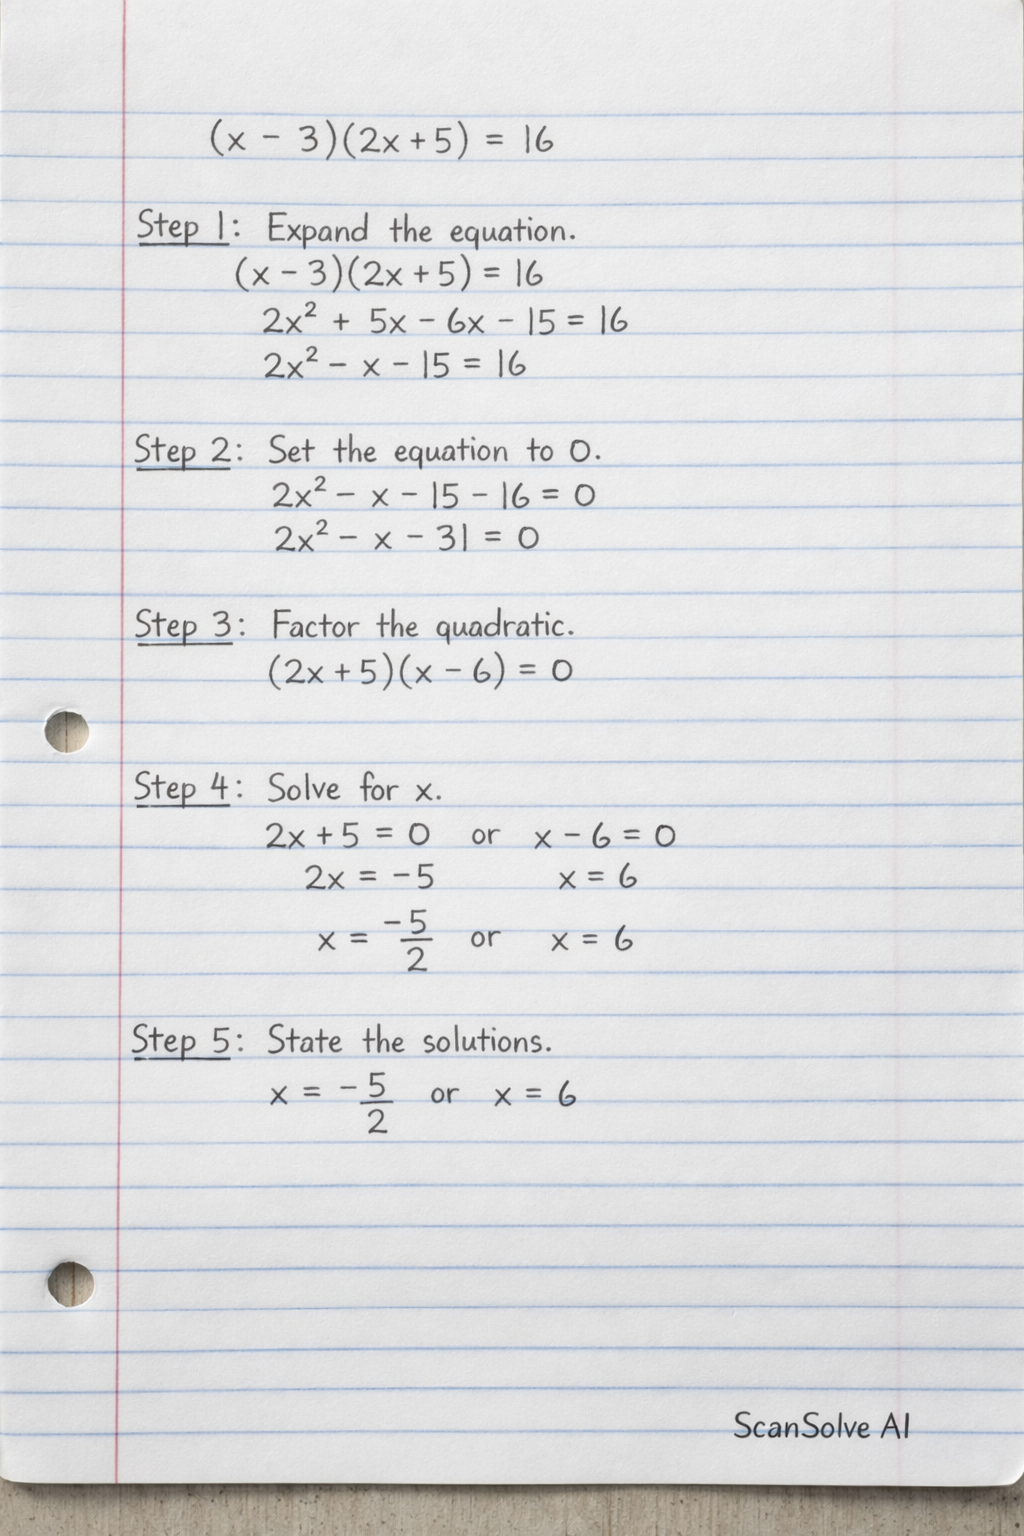 (x - 3)(2x + 5) = 16
Step 1: Expand the equation.
(x - 3)(2x + 5) = 16
2x² + 5x - 6x - 15 = 16
2x² - x - 15 = 16
Step 2: Set the equation to 0.
2x² - x - 15 - 16 = 0
2x² - x - 31 = 0
Step 3: Factor the quadratic.
(2x + 5)(x - 6) = 0
Step 4: Solve for x.
2x + 5 = 0 or x - 6 = 0
2x = -5 x = 6
x = -5/2 or x = 6
Step 5: State the solutions.
x = -5/2 or x = 6
ScanSolve AI